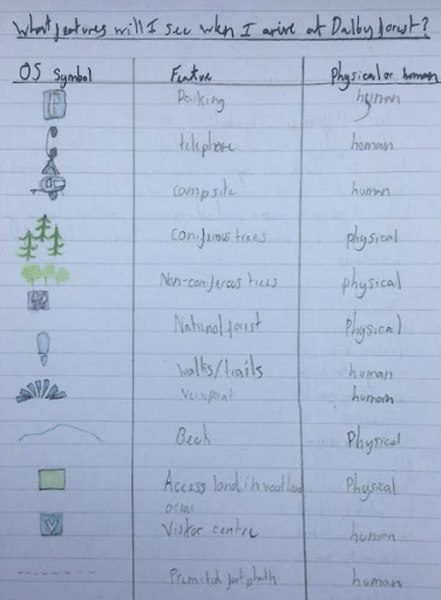 What features will I see when I arive at Dalby forest?
OS Symbol Feature Physical or human
P Parking human
telephone human
campsite human
Coniferous trees physical
Non-coniferous trees physical
National forest Physical
Walks/trails human
Viewpoint human
Beck Physical
Access land in woodland Physical
area
V Visitor centre human
Permitted footpath human